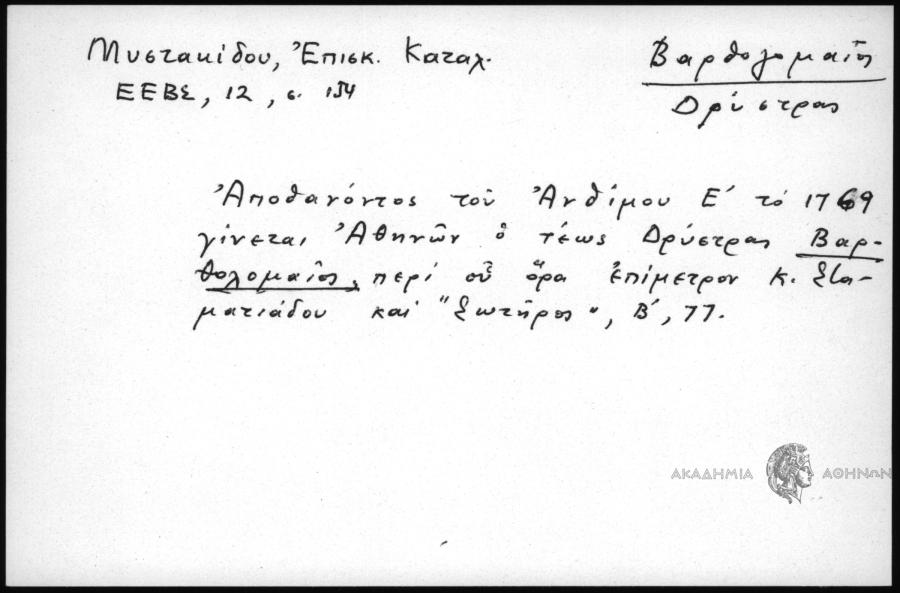 Μυστακίδου, Ἐπισκ. Καταλ.
ΕΕΒΣ, 12, σ. 154
Βαρθολομαῖος
Δρύστρας
Ἀποθανόντος τοῦ Ἀνθίμου Ε΄ τό 1769
γίνεται Ἀθηνῶν ὁ τέως Δρύστρας Βαρ-
θολομαῖος, περί οὗ ὅρα ἐπίμετρον κ. Στα-
ματιάδου καί "Σωτῆρος", Β΄, 77.
ΑΚΑΔΗΜΙΑ ΑΘΗΝΩΝ